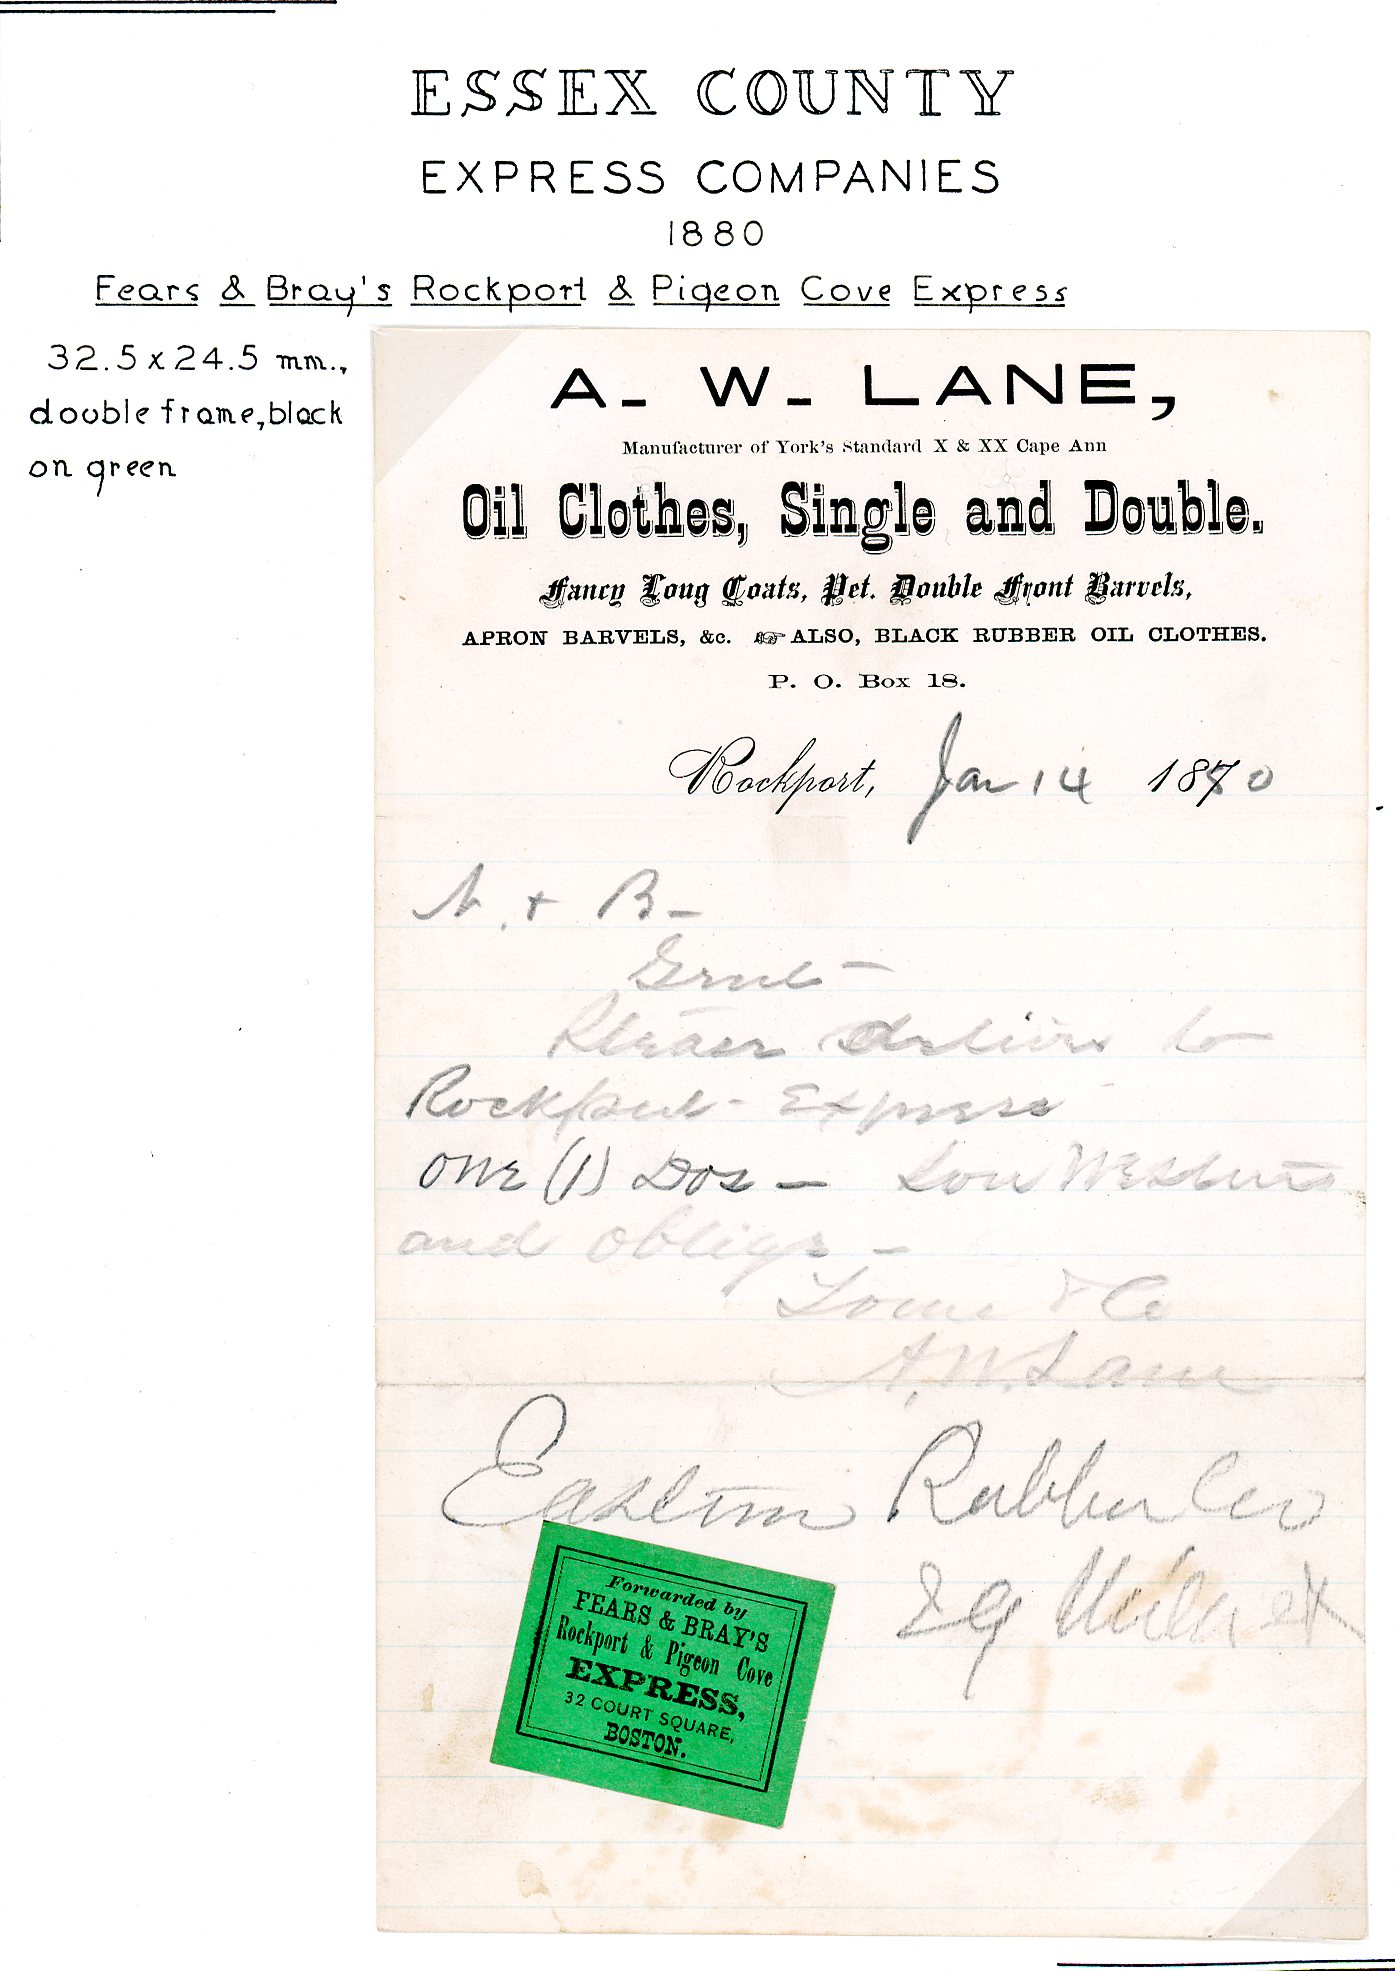 ESSEX COUNTY
EXPRESS COMPANIES
1880
Fears & Bray's Rockport & Pigeon Cove Express
32.5 x 24.5 mm.,
double frame, black
on green
A. W. LANE,
Manufacturer of York's Standard X & XX Cape Ann
Oil Clothes, Single and Double.
Fancy Long Coats, Pet. Double Front Barvels,
APRON BARVELS, &c. ALSO, BLACK RUBBER OIL CLOTHES.
P. O. Box 18.
Rockport, Jan 14 1880
& B-
Gent-
Please deliver to
Rockport- Express
one (1) Doz -
and oblige -
& Co
A. W. Lane
Eastern Rubber Co
Forwarded by
FEARS & BRAY'S
Rockport & Pigeon Cove
EXPRESS,
32 COURT SQUARE,
BOSTON.